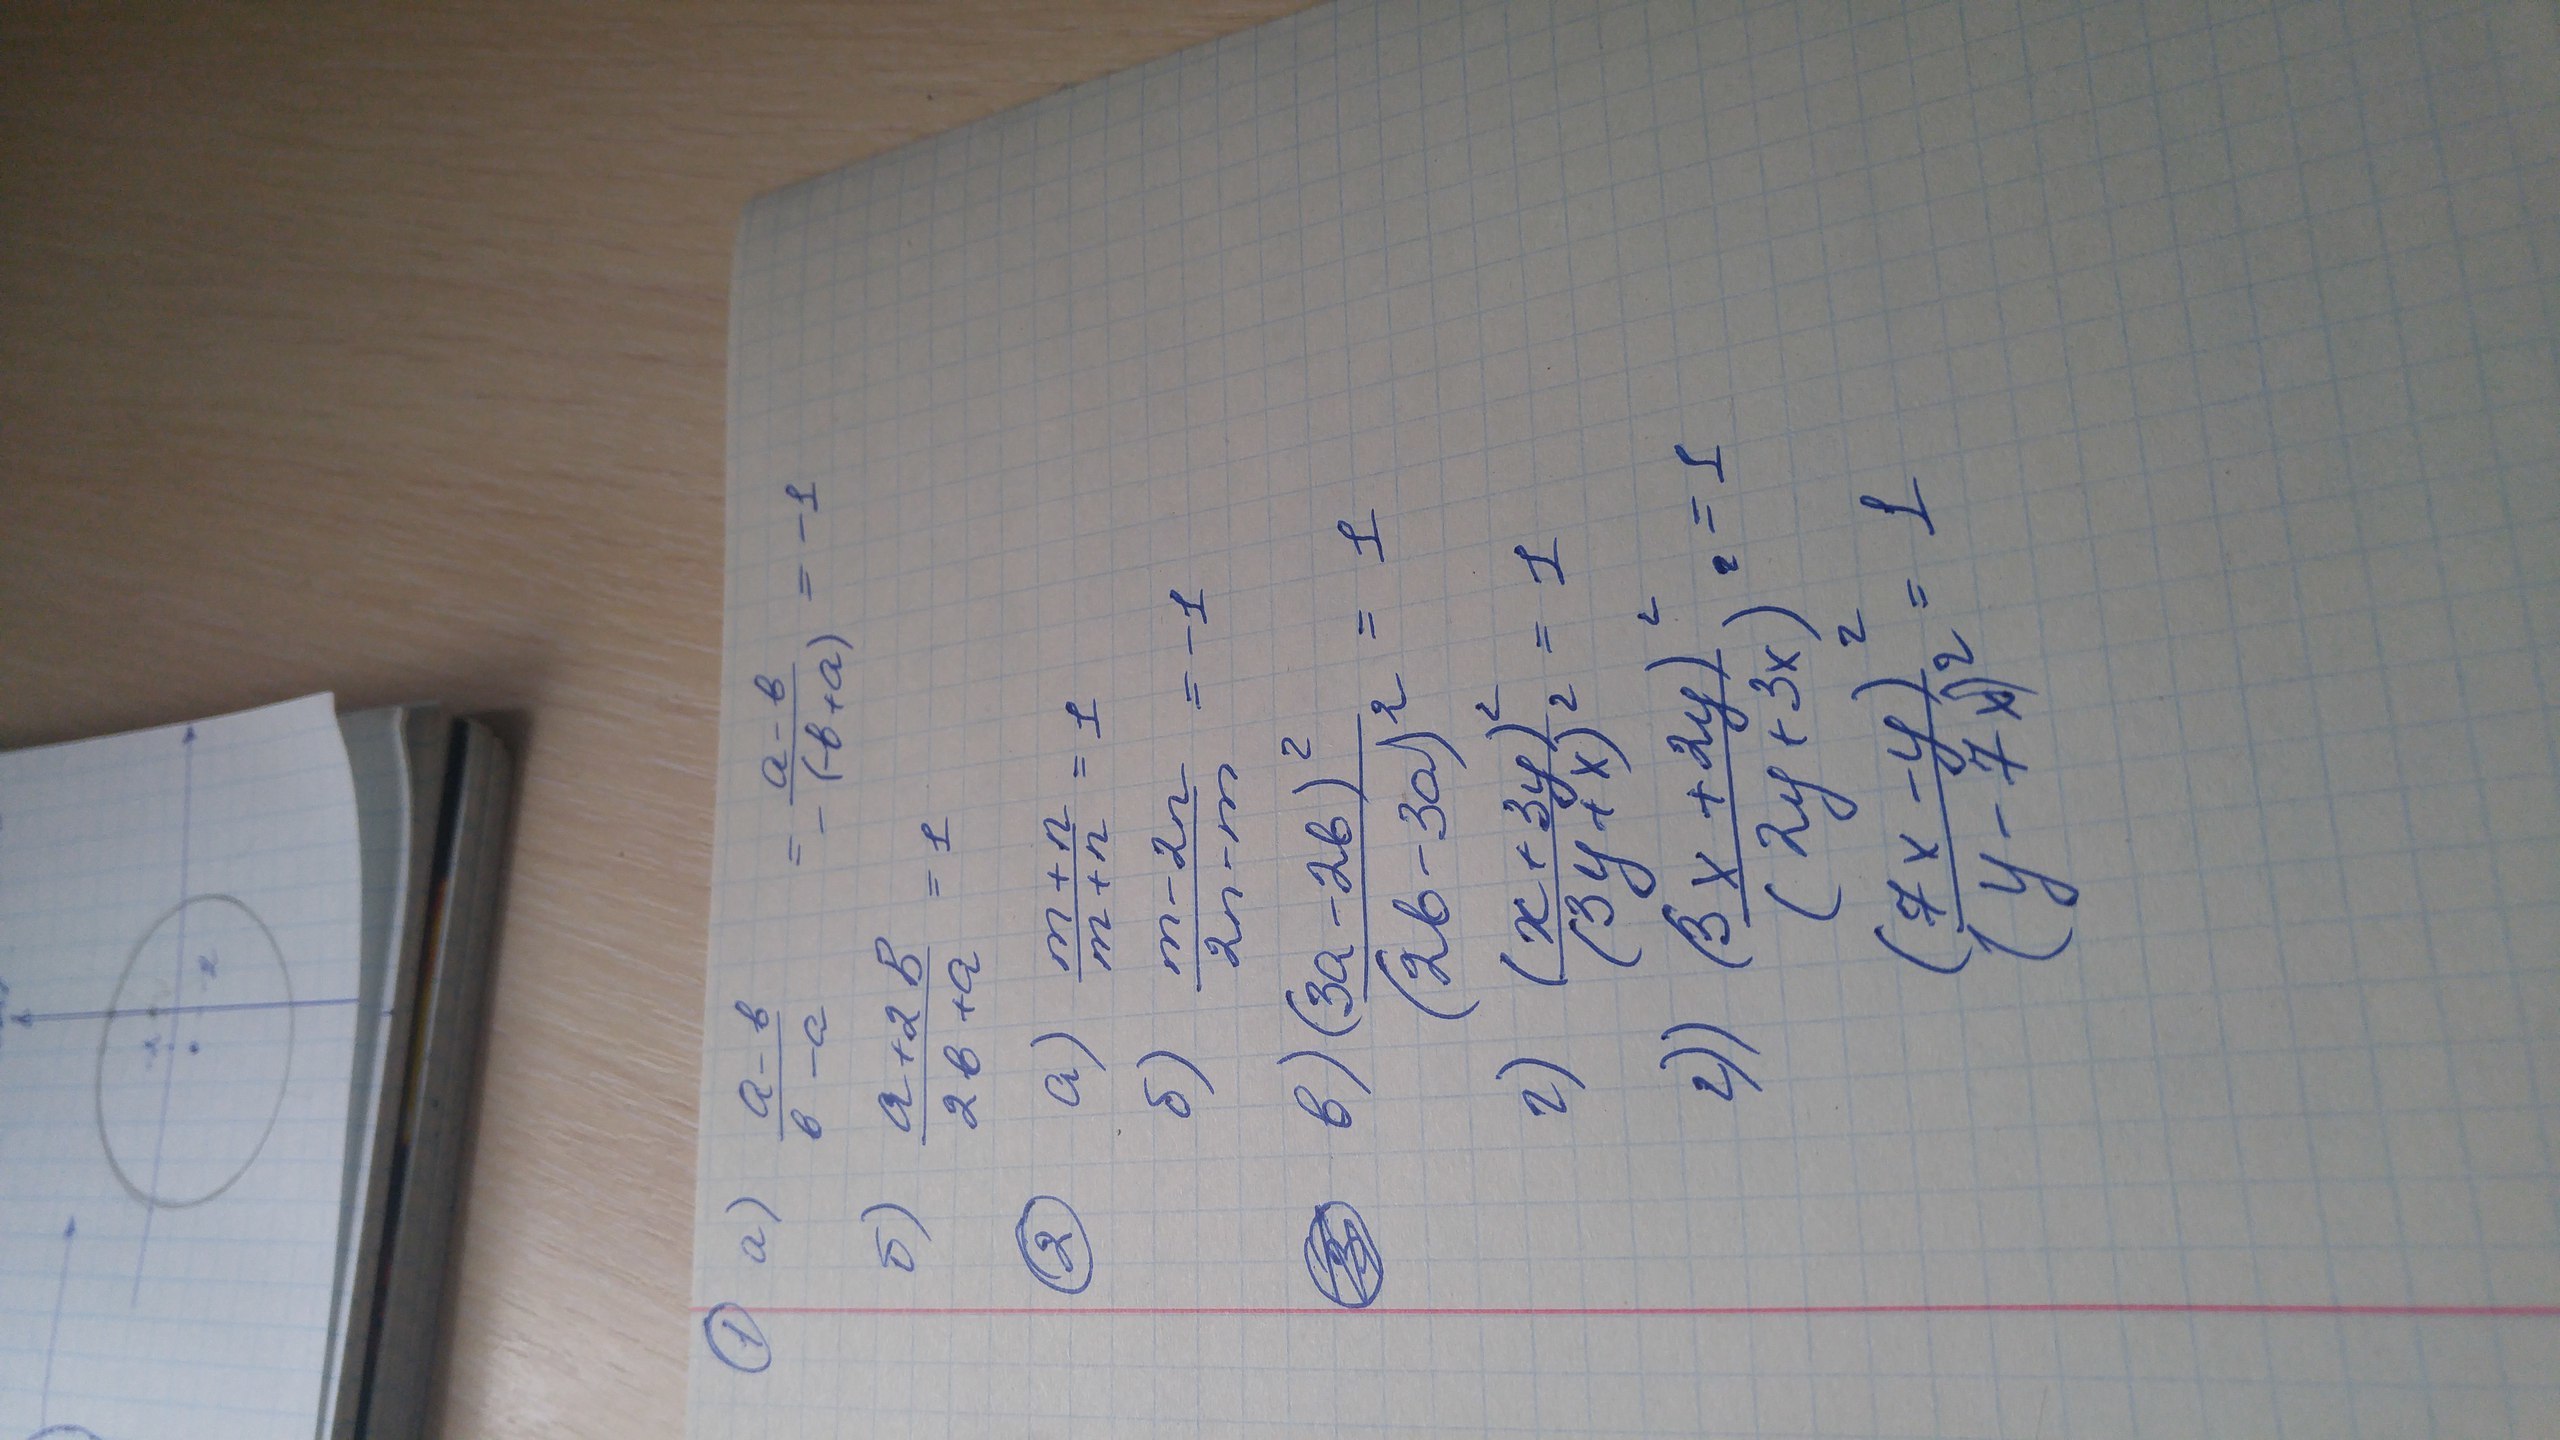 ① а) (a-b)/(b-a) = -(a-b)/(-b+a) = -1
б) (a+2b)/(2b+a) = 1
② а) (m+n)/(m+n) = 1
б) (m-2n)/(2n-m) = -1
в) (3a-2b)²/(2b-3a)² = 1
г) (x+3y)²/(3y+x)² = 1
г)) (3x+2y)²/(2y+3x)² = 1
(7x-y)²/(y-7x)² = 1